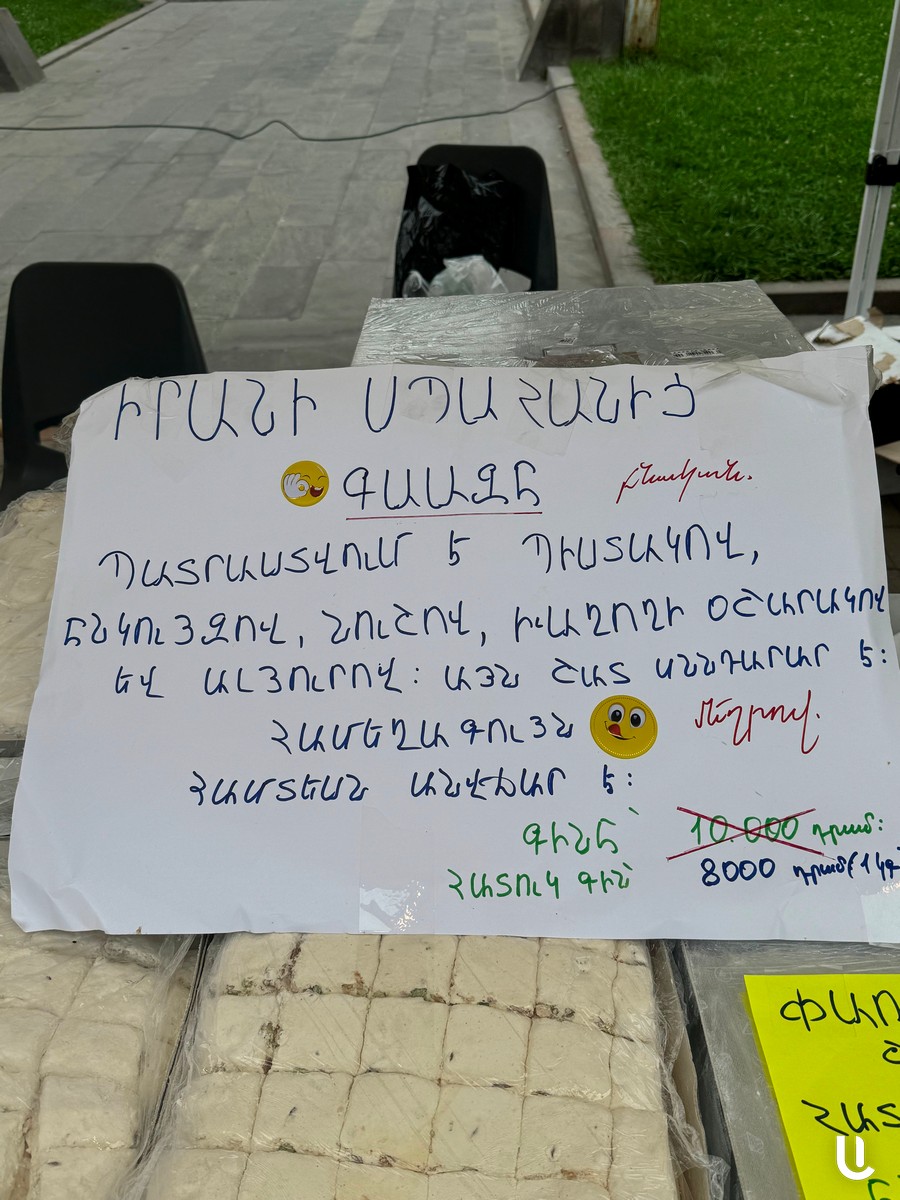 ԻՐԱՆԻ ՍՊԱՀԱՆԻՑ
ԳԱԱԶԸ բնական.
ՊԱՏՐԱՍՏՎՈՒՄ Է ՊԻՍՏԱԿՈՎ,
ԸՆԿՈՒՅԶՈՎ, ՆՈՒՇՈՎ, ԽԱՂՈՂԻ ՕՇԱՐԱԿՈՎ
ԵՎ ԱԼՅՈՒՐՈՎ: ԱՅՆ ՇԱՏ ՍՆՆԴԱՐԱՐ Է:
ՀԱՄԵՂԱԳՈՒՅՆ մեղրով.
ՀԱՄՏԵՍՆ ԱՆՎՃԱՐ Է:
ԳԻՆԸ՝ 10.000 դրամ:
ՀԱՏՈՒԿ ԳԻՆ՝ 8000 դրամ (1 կգ
ՓԱՌ
ՀԱՏ